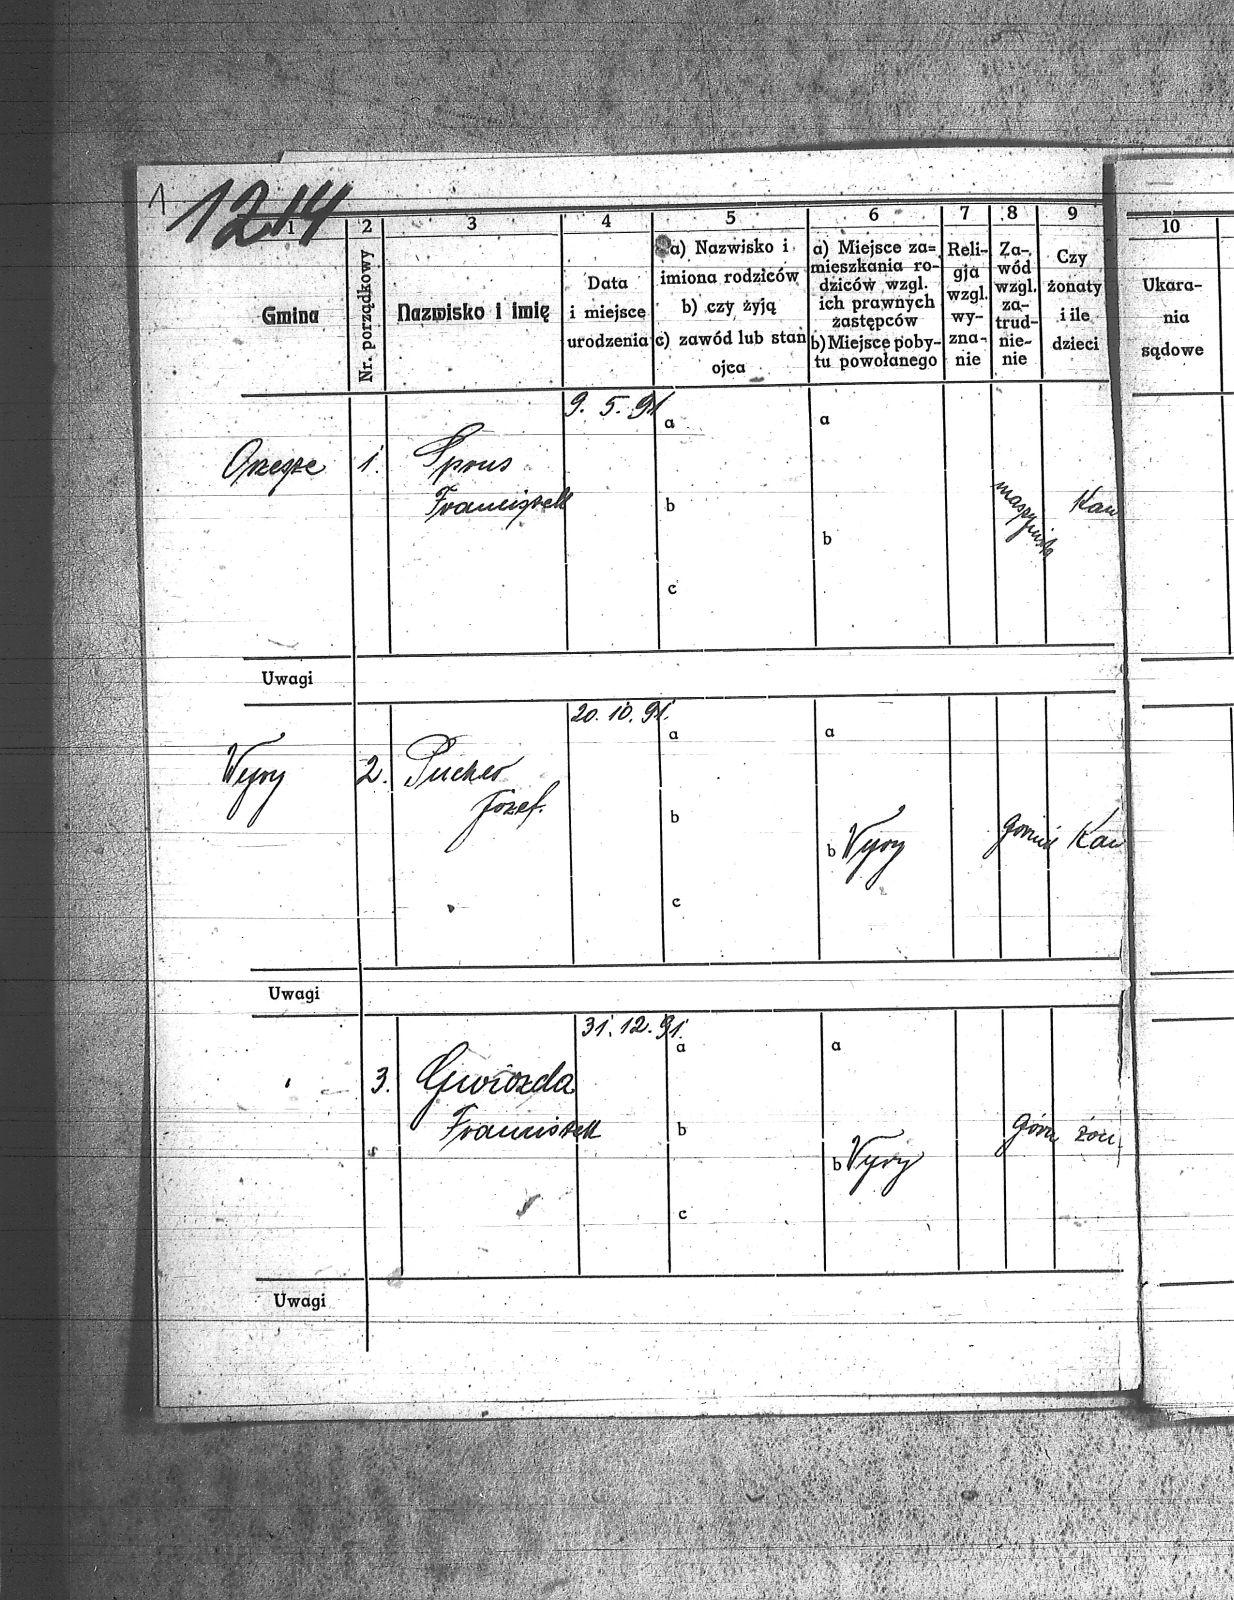 1214
1
2
3
4
5
6
7
8
9
10
Gmina
Nr. porządkowy
Nazwisko i imię
Data
i miejsce
urodzenia
a) Nazwisko i
imiona rodziców
b) czy żyją
c) zawód lub stan
ojca
a) Miejsce za=
mieszkania ro-
dziców wzgl.
ich prawnych
zastępców
b) Miejsce poby-
tu powołanego
Reli-
gja
wzgl.
wy-
zna-
nie
Za-
wód
wzgl.
za-
trud-
nie-
nie
Czy
żonaty
i ile
dzieci
Ukara-
nia
sądowe
9. 5. 91
a
a
Orzesze 1. Sprus
Franciszek
b
b
c
maszynista
Kaw
Uwagi
20. 10. 91.
a
a
Wyry 2. Pucher
Józef.
b
b Wyry
górnik Kaw
c
Uwagi
31. 12. 91.
a
a
3. Gwiozda
Franciszek
b
b Wyry
górn żon.
c
Uwagi